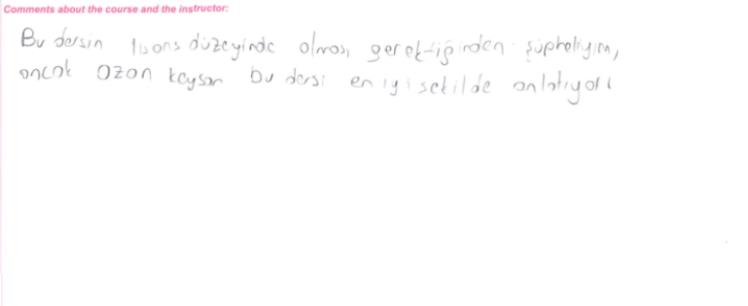 Comments about the course and the instructor:
Bu dersin lisans düzeyinde olması gerektiğinden şüpheliyim,
ancak Ozan Keysan bu dersi en iyi şekilde anlatıyor.